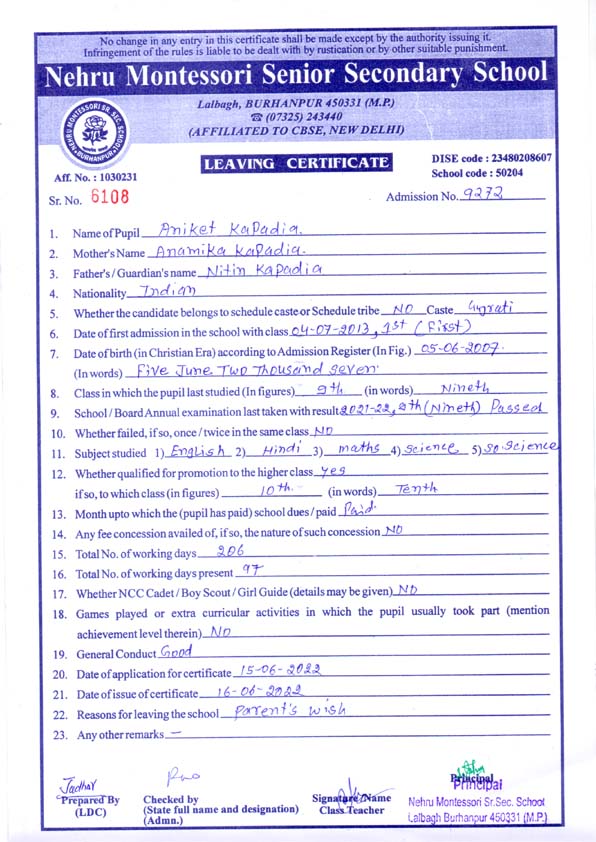 No change in any entry in this certificate shall be made except by the authority issuing it.
Infringement of the rules is liable to be dealt with by rustication or by other suitable punishment.
Nehru Montessori Senior Secondary School
Lalbagh, BURHANPUR 450331 (M.P.)
☎ (07325) 243440
(AFFILIATED TO CBSE, NEW DELHI)
NEHRU MONTESSORI SR. SEC. SCHOOL
BURHANPUR
LEAVING CERTIFICATE
DISE code : 23480208607
School code : 50204
Aff. No. : 1030231
Sr. No. 6108
Admission No. 9272
1. Name of Pupil Aniket Kapadia.
2. Mother's Name Anamika Kapadia.
3. Father's / Guardian's name Nitin Kapadia
4. Nationality Indian
5. Whether the candidate belongs to schedule caste or Schedule tribe NO Caste Gujrati
6. Date of first admission in the school with class 04-07-2013, 1st (First)
7. Date of birth (in Christian Era) according to Admission Register (In Fig.) 05-06-2007.
(In words) Five June Two Thousand Seven.
8. Class in which the pupil last studied (In figures) 9th (in words) Nineth
9. School / Board Annual examination last taken with result 2021-22, 9th (Nineth) Passed
10. Whether failed, if so, once / twice in the same class NO
11. Subject studied 1) English 2) Hindi 3) maths 4) Science 5) So. Science
12. Whether qualified for promotion to the higher class yes
if so, to which class (in figures) 10th. (in words) Tenth
13. Month upto which the (pupil has paid) school dues / paid Paid.
14. Any fee concession availed of, if so, the nature of such concession NO
15. Total No. of working days 206
16. Total No. of working days present 97
17. Whether NCC Cadet / Boy Scout / Girl Guide (details may be given) NO
18. Games played or extra curricular activities in which the pupil usually took part (mention
achievement level therein) NO
19. General Conduct Good
20. Date of application for certificate 15-06-2022
21. Date of issue of certificate 16-06-2022
22. Reasons for leaving the school Parent's wish
23. Any other remarks —
Jadhav
Prepared By
(LDC)
Rao
Checked by
(State full name and designation)
(Admn.)
Signature/Name
Class Teacher
Principal
Principal
Nehru Montessori Sr.Sec. School
Lalbagh Burhanpur 450331 (M.P.)